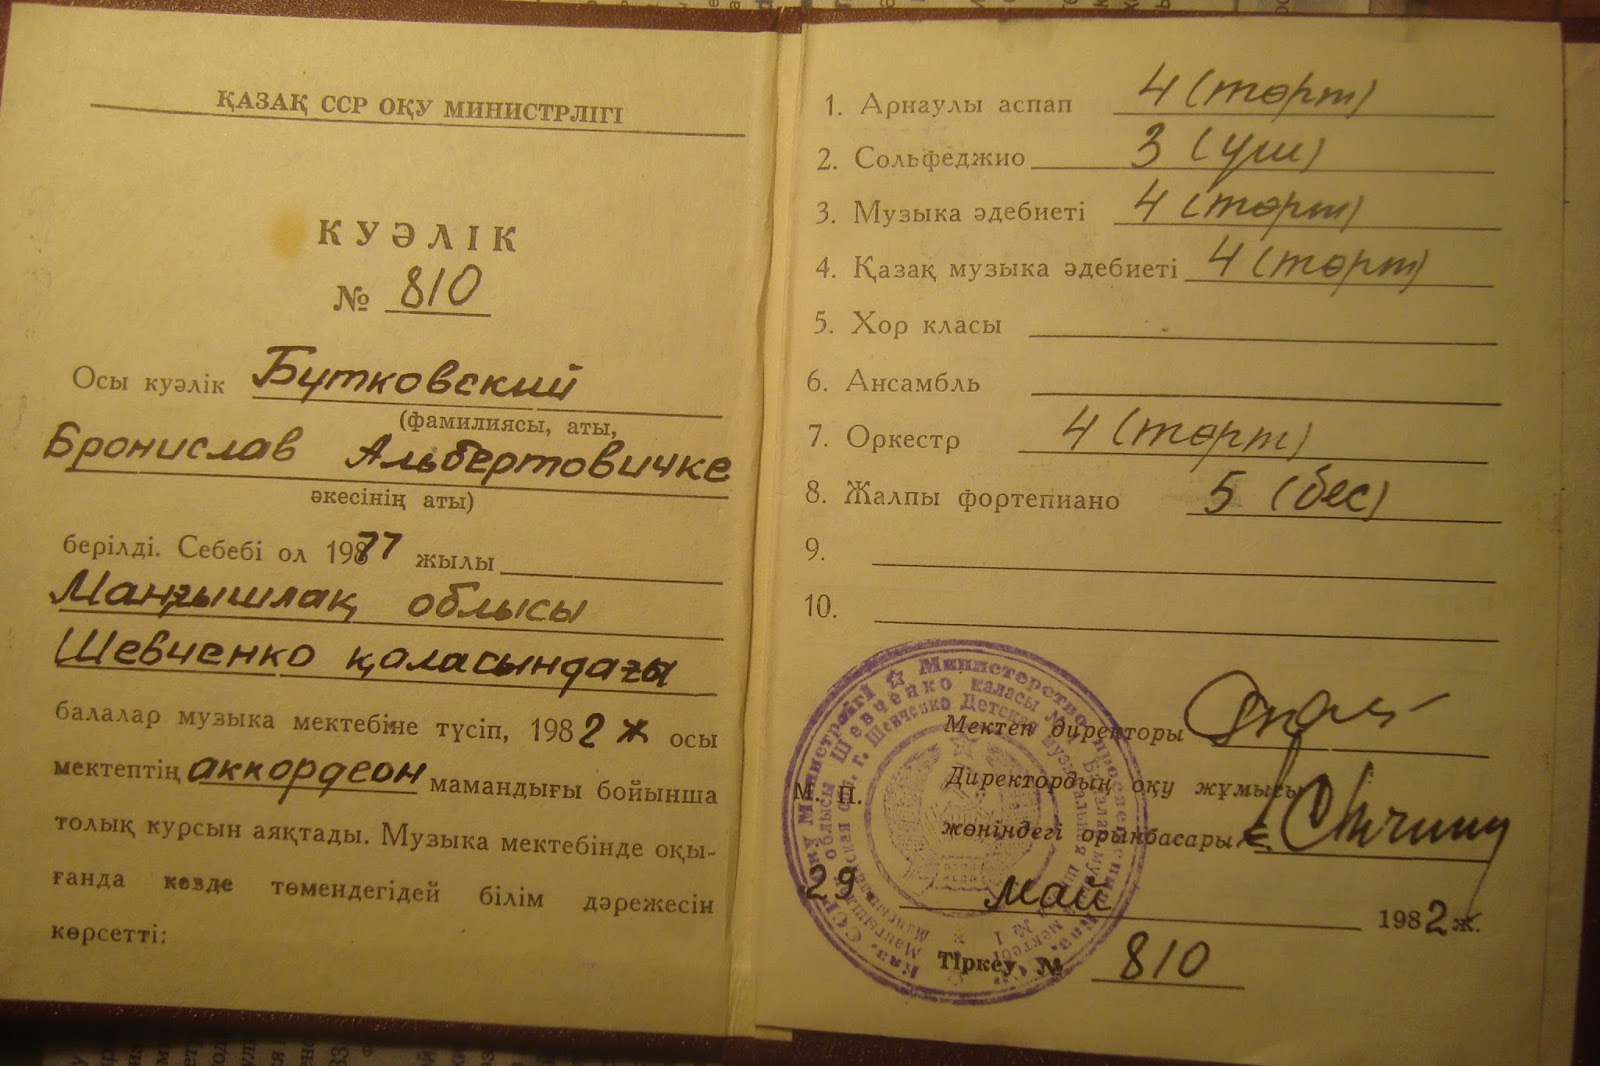 ҚАЗАҚ ССР ОҚУ МИНИСТРЛІГІ
КУӘЛІК
№ 810
Осы куәлік Бутковский
(фамилиясы, аты,
Бронислав Альбертовичке
әкесінің аты)
берілді. Себебі ол 1977 жылы
Маңғышлақ облысы
Шевченко қаласындағы
балалар музыка мектебіне түсіп, 1982 ж осы
мектептің аккордеон мамандығы бойынша
толық курсын аяқтады. Музыка мектебінде оқы-
ғанда кезде төмендегідей білім дәрежесін
көрсетті:
1. Арнаулы аспап 4 (төрт)
2. Сольфеджио 3 (үш)
3. Музыка әдебиеті 4 (төрт)
4. Қазақ музыка әдебиеті 4 (төрт)
5. Хор класы
6. Ансамбль
7. Оркестр 4 (төрт)
8. Жалпы фортепиано 5 (бес)
9.
10.
Мектеп директоры
М. П.
Директордың оқу жұмысы
жөніндегі орынбасары
29 май 1982 ж.
Тіркеу № 810